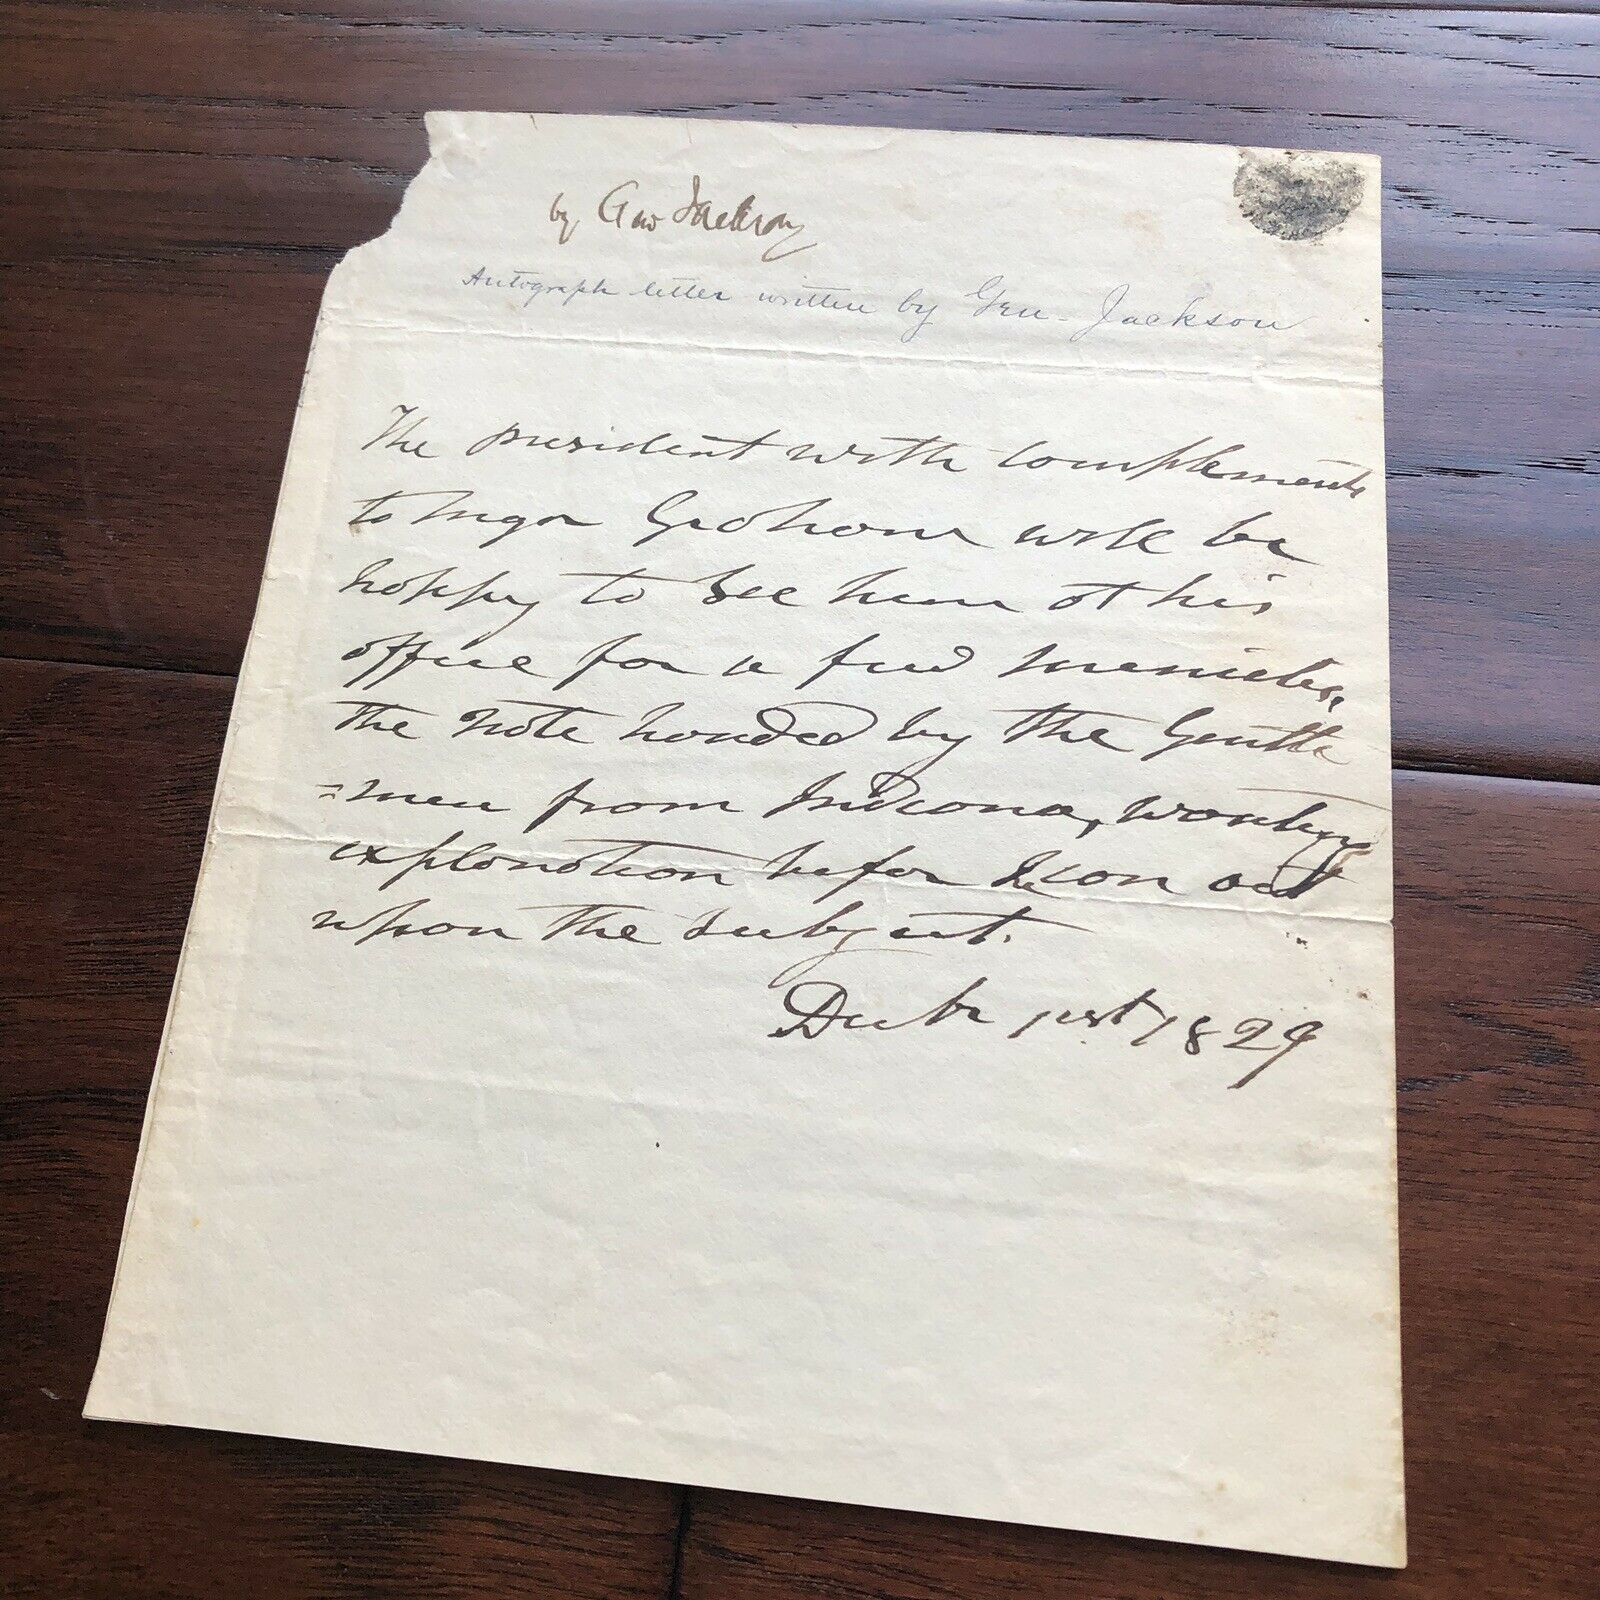 by Gen Jackson
Autograph letter written by Gen. Jackson
The president with complements
to Majr Graham will be
happy to see him at his
office for a few minietes,
the note handed by the Gentle
=men from Indiana, wanting
explanation before I can act
upon the subject.
Decbr 1rst 1829